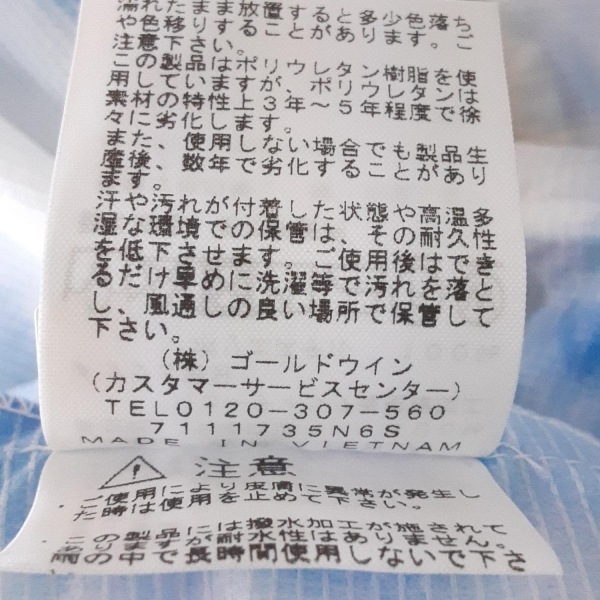 濡れたまま放置すると多少色落ち
や色移りすることがあります。ご
注意下さい。
この製品はポリウレタン樹脂を使
用していますが、ポリウレタンは
素材の特性上3年～5年程度で徐
々に劣化します。
また、使用しない場合でも製品生
産後、数年で劣化することがあり
ます。
汗や汚れが付着した状態や高温多
湿な環境での保管は、その耐久性
を低下させます。ご使用後はでき
るだけ早めに洗濯等で汚れを落と
し、風通しの良い場所で保管して
下さい。
(株) ゴールドウイン
(カスタマーサービスセンター)
TEL0120-307-560
7111735N6S
MADE IN VIETNAM
注意
ご使用により皮膚に異常が発生し
た時は使用を止めて下さい。
この製品には撥水加工が施されて
のりますが耐水性はありません。
雨の中で長時間使用しないで下さ